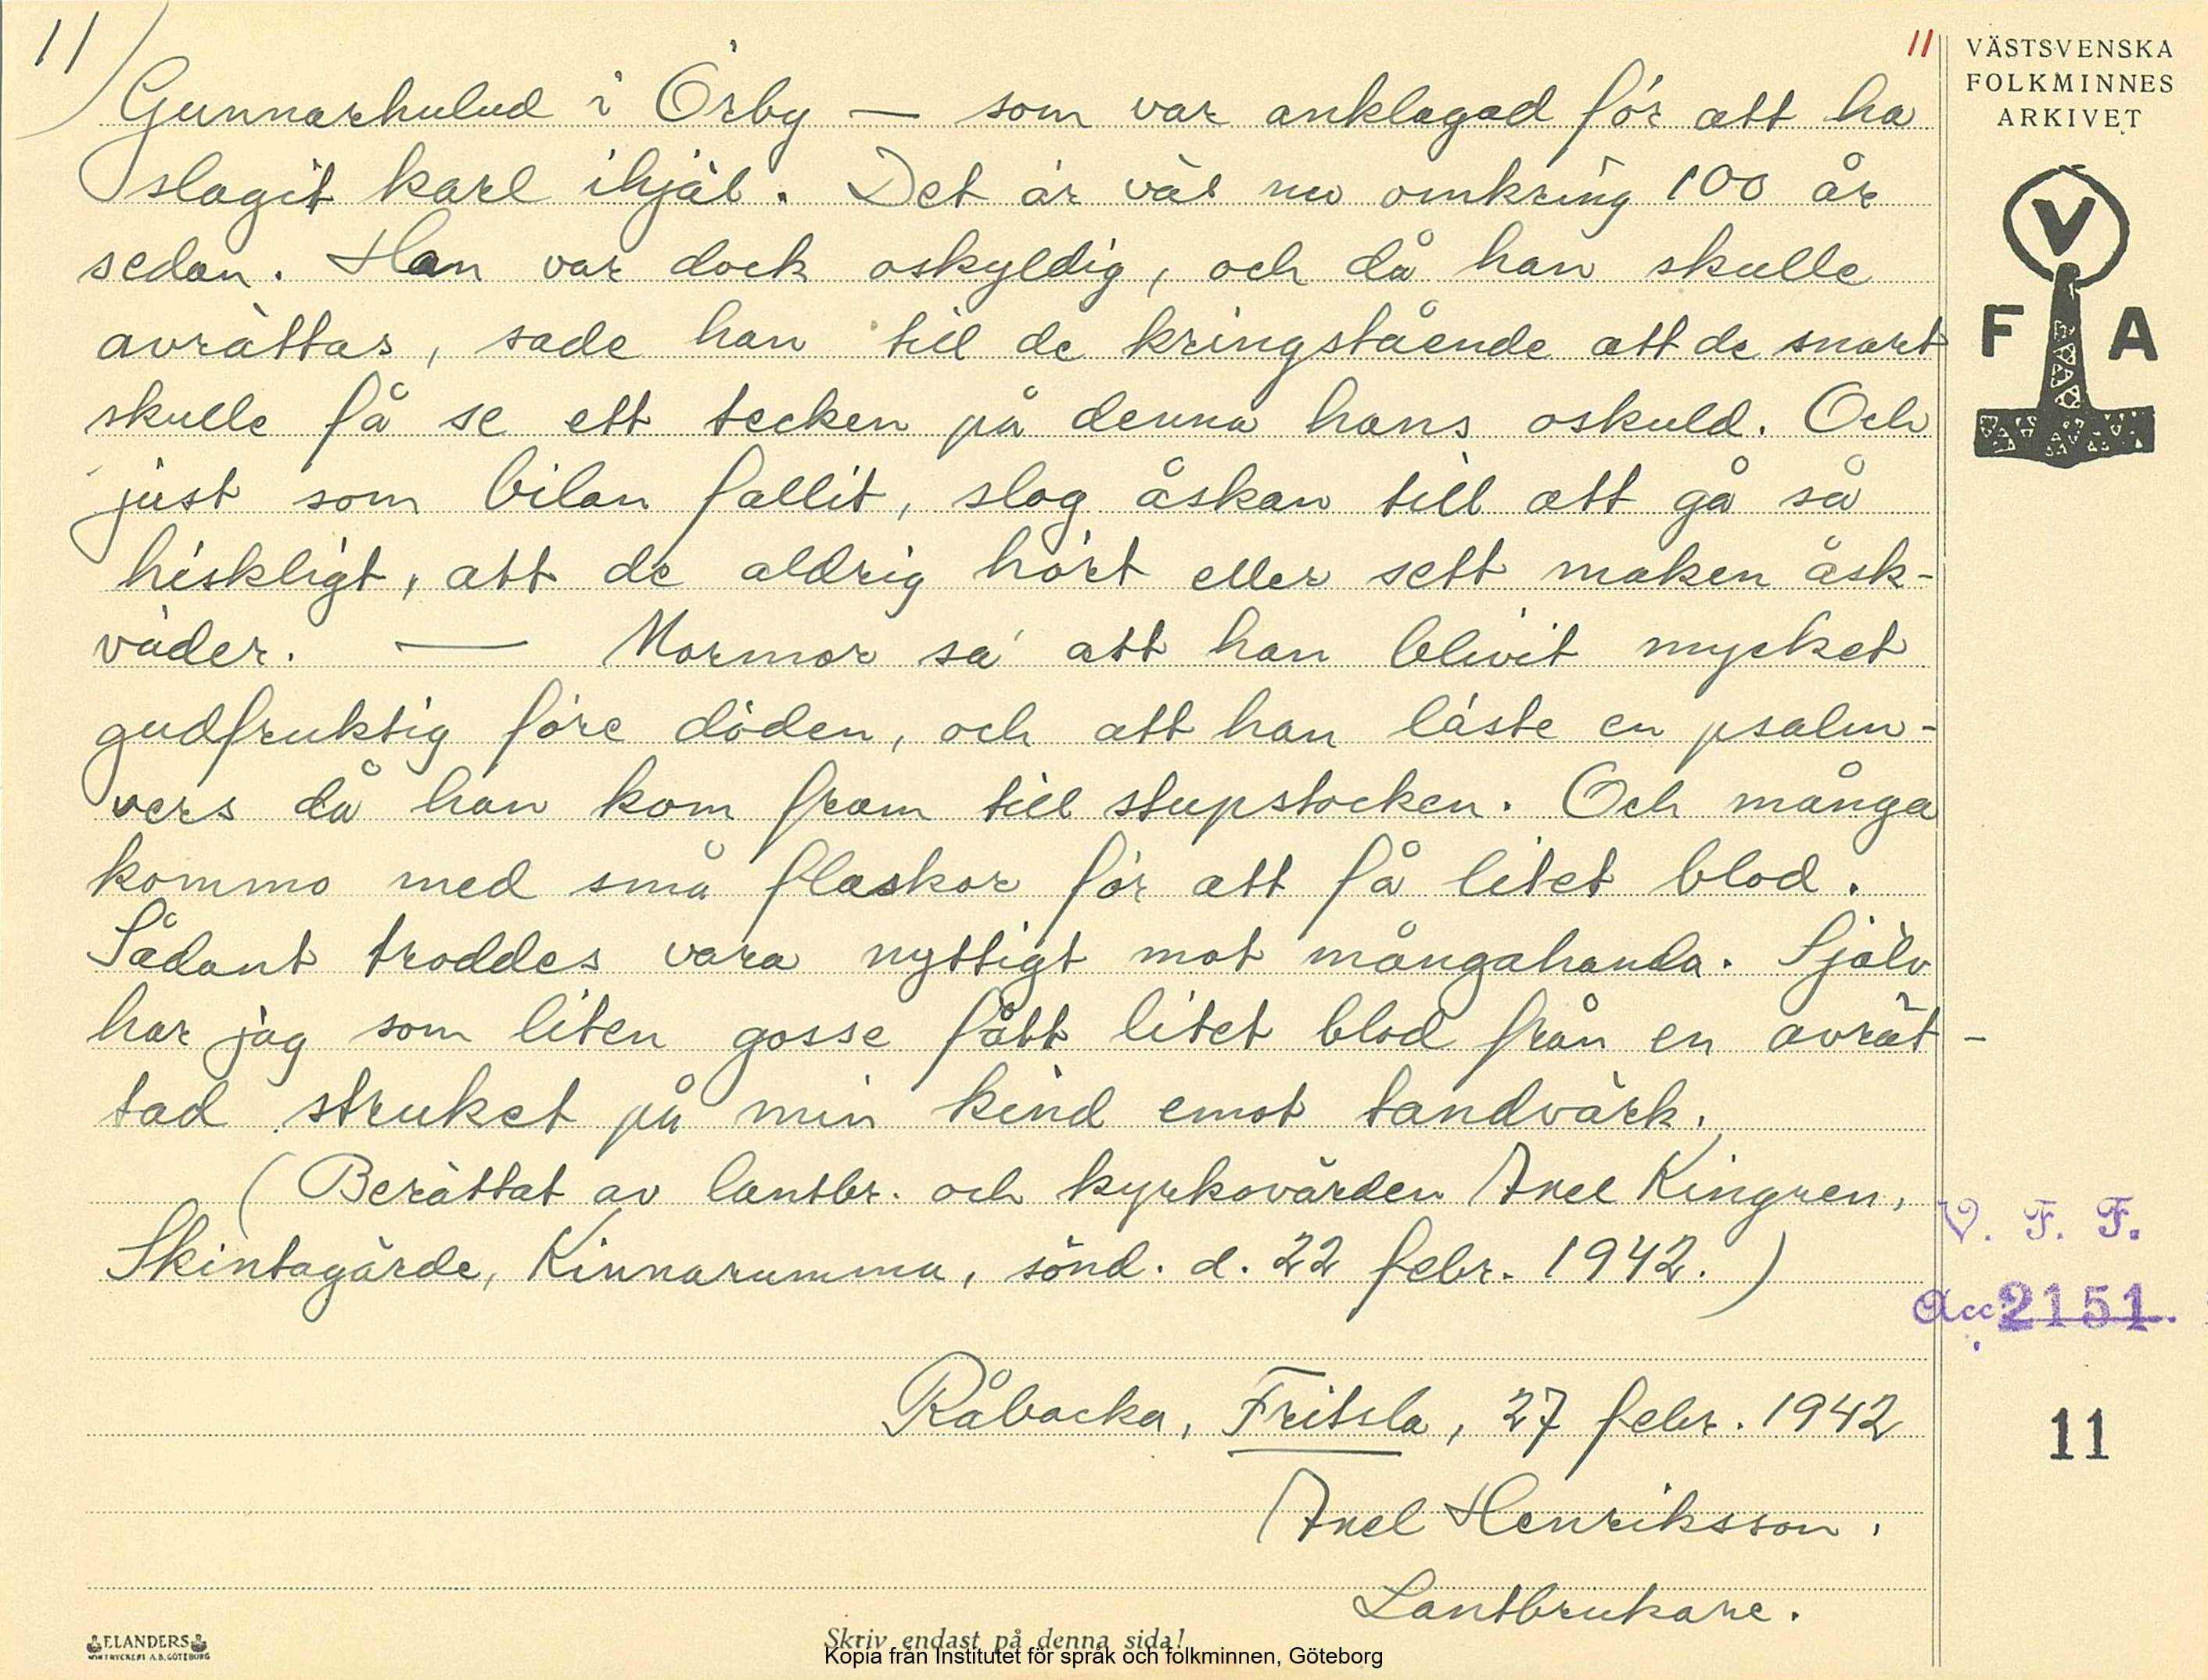 11/
11
VÄSTSVENSKA
FOLKMINNES
ARKIVET
V
F A
Gunnarhulud i Örby — som var anklagad för att ha
slagit karl ihjäl. Det är väl nu omkring 100 år
sedan. Han var dock oskyldig, och då han skulle
avrättas, sade han till de kringstående att de snart
skulle få se ett tecken på denna hans oskuld. Och
just som bilan fallit, slog åskan till att gå så
hiskligt, att de aldrig hört eller sett maken åsk-
väder. — Mormor sa' att han blivit mycket
gudfruktig före döden, och att han läste en psalm-
vers då han kom fram till stupstocken. Och många
kommo med små flaskor för att få litet blod.
Sådant troddes vara nyttigt mot mångahanda. Själv
har jag som liten gosse fått litet blod från en avrät-
tad struket på min kind emot tandvärk.
(Berättat av lantbr. och kyrkovärden Axel Kingren,
Skintagärde, Kinnarumma, sönd. d. 22 febr. 1942.)
V. F. F.
Acc 2151.
Råbacka, Fritsla, 27 febr. 1942
11
Axel Henriksson.
Lantbrukare.
ELANDERS
BOKTRYCKERI A.B. GÖTEBORG
Skriv endast på denna sida!
Kopia från Institutet för språk och folkminnen, Göteborg